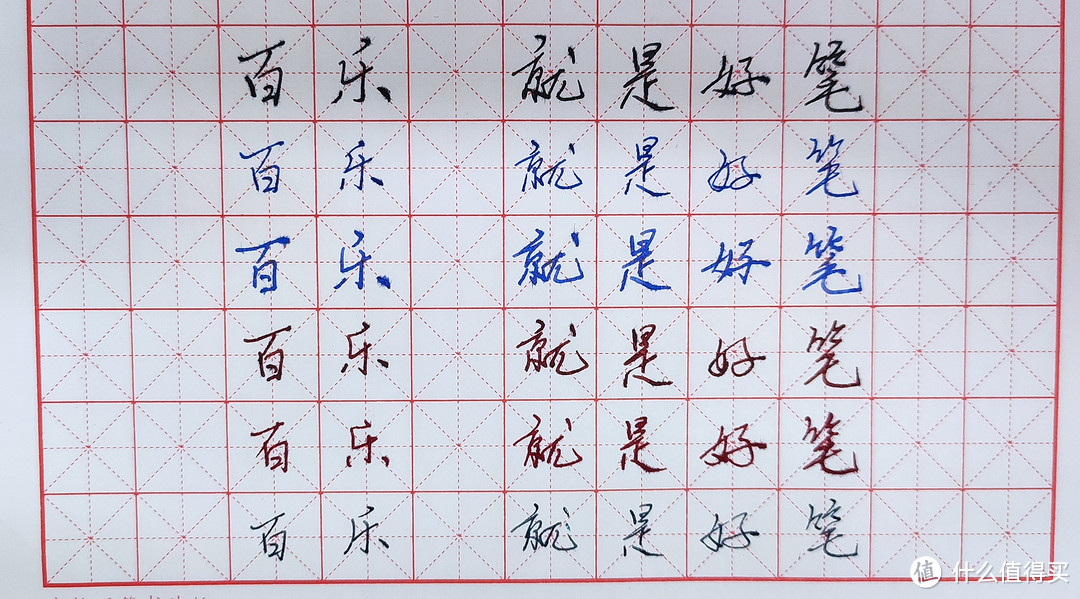 百乐 就是好笔
百乐 就是好笔
百乐 就是好笔
百乐 就是好笔
百乐 就是好笔
百乐 就是好笔
值 什么值得买